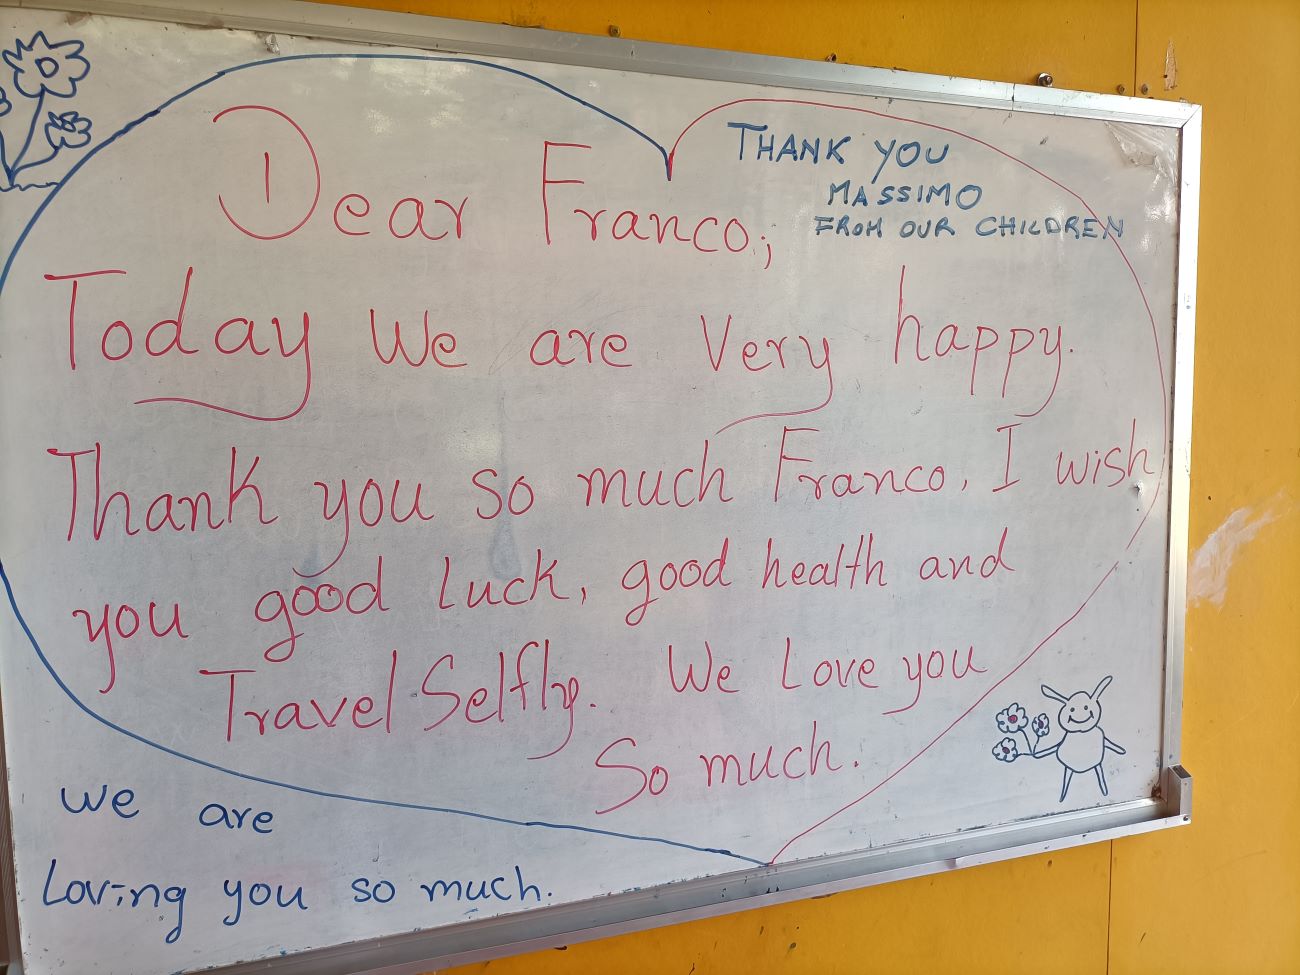 Dear Franco;
THANK YOU
MASSIMO
FROM OUR CHILDREN
Today We are Very happy.
Thank you so much Franco, I wish
you good luck, good health and
Travel Selfly. We Love you
So much.
We are
Loving you so much.